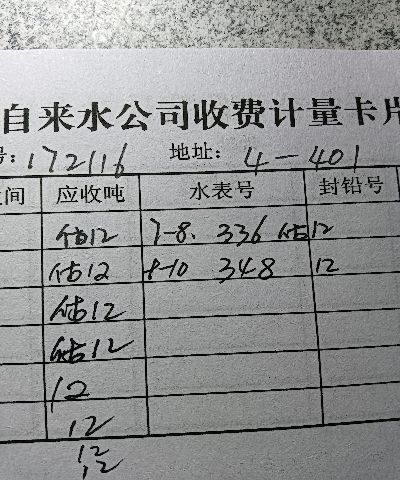 自来水公司收费计量卡片
号:172116 地址: 4-401
间 应收吨 水表号 封铅号
估12 7-8. 336 估12
估12 8-10 348 12
估12
估12
12
12
12
12